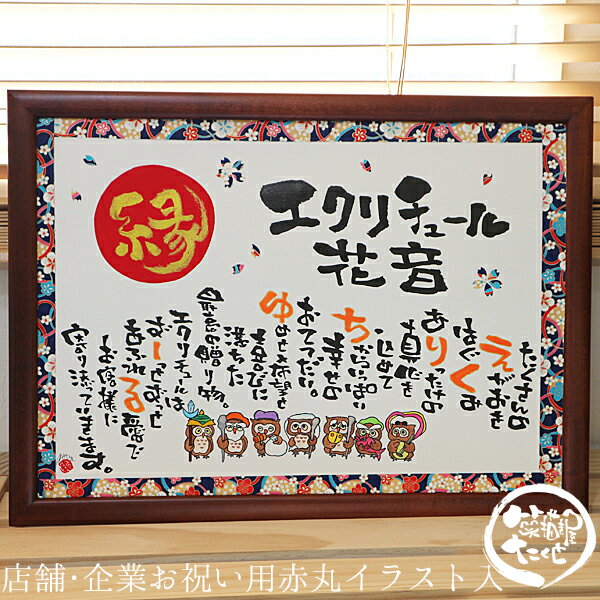 縁
エクリチュール
花音
たくさんの
えがおを
はぐくみ
ありったけの
真心を
こめて
ちからいっぱい
幸せの
おてつだい。
ゆめと希望と
喜びに
満ちた
最高の贈り物。
エクリチュールは
ずーっとずーっと
あふれる愛で
お客様に
寄り添っていきます。
店舗･企業お祝い用赤丸イラスト入